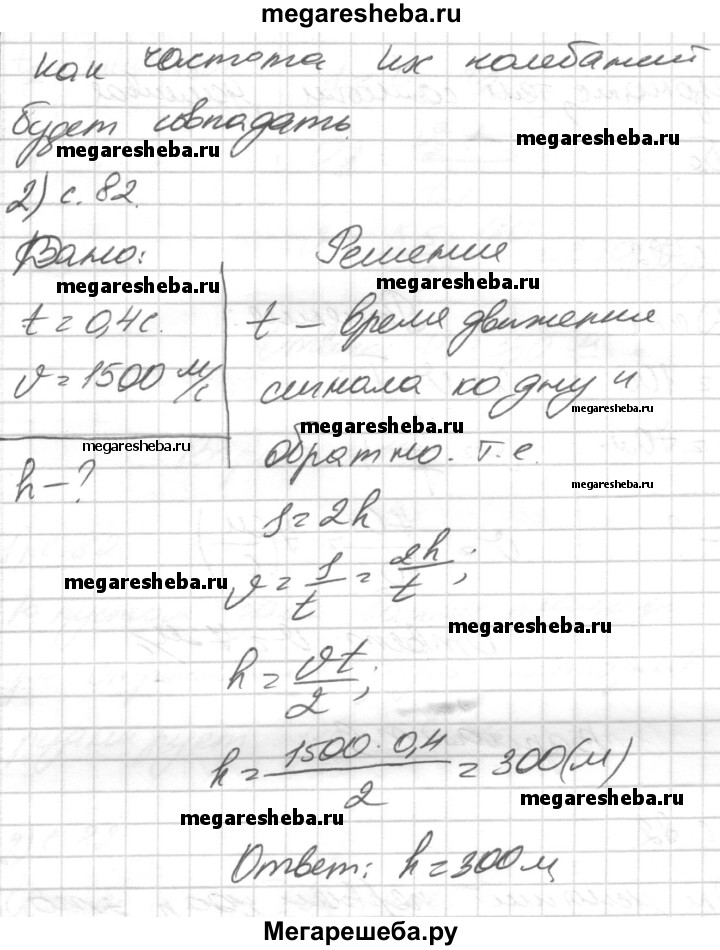 megaresheba.ru
как частота их колебаний
будет совпадать.
megaresheba.ru
megaresheba.ru
2) с. 82.
Дано:
Решение
megaresheba.ru
megaresheba.ru
t = 0,4 с.
t – время движения
υ = 1500 м/с
сигнала ко дну и
megaresheba.ru
megaresheba.ru
megaresheba.ru
обратно. т.е.
h – ?
megaresheba.ru
s = 2h
υ = s/t = 2h/t;
megaresheba.ru
megaresheba.ru
h = υt/2;
h = 1500 · 0,4/2 = 300 (м)
megaresheba.ru
megaresheba.ru
Ответ: h = 300 м
Мегарешеба.ру